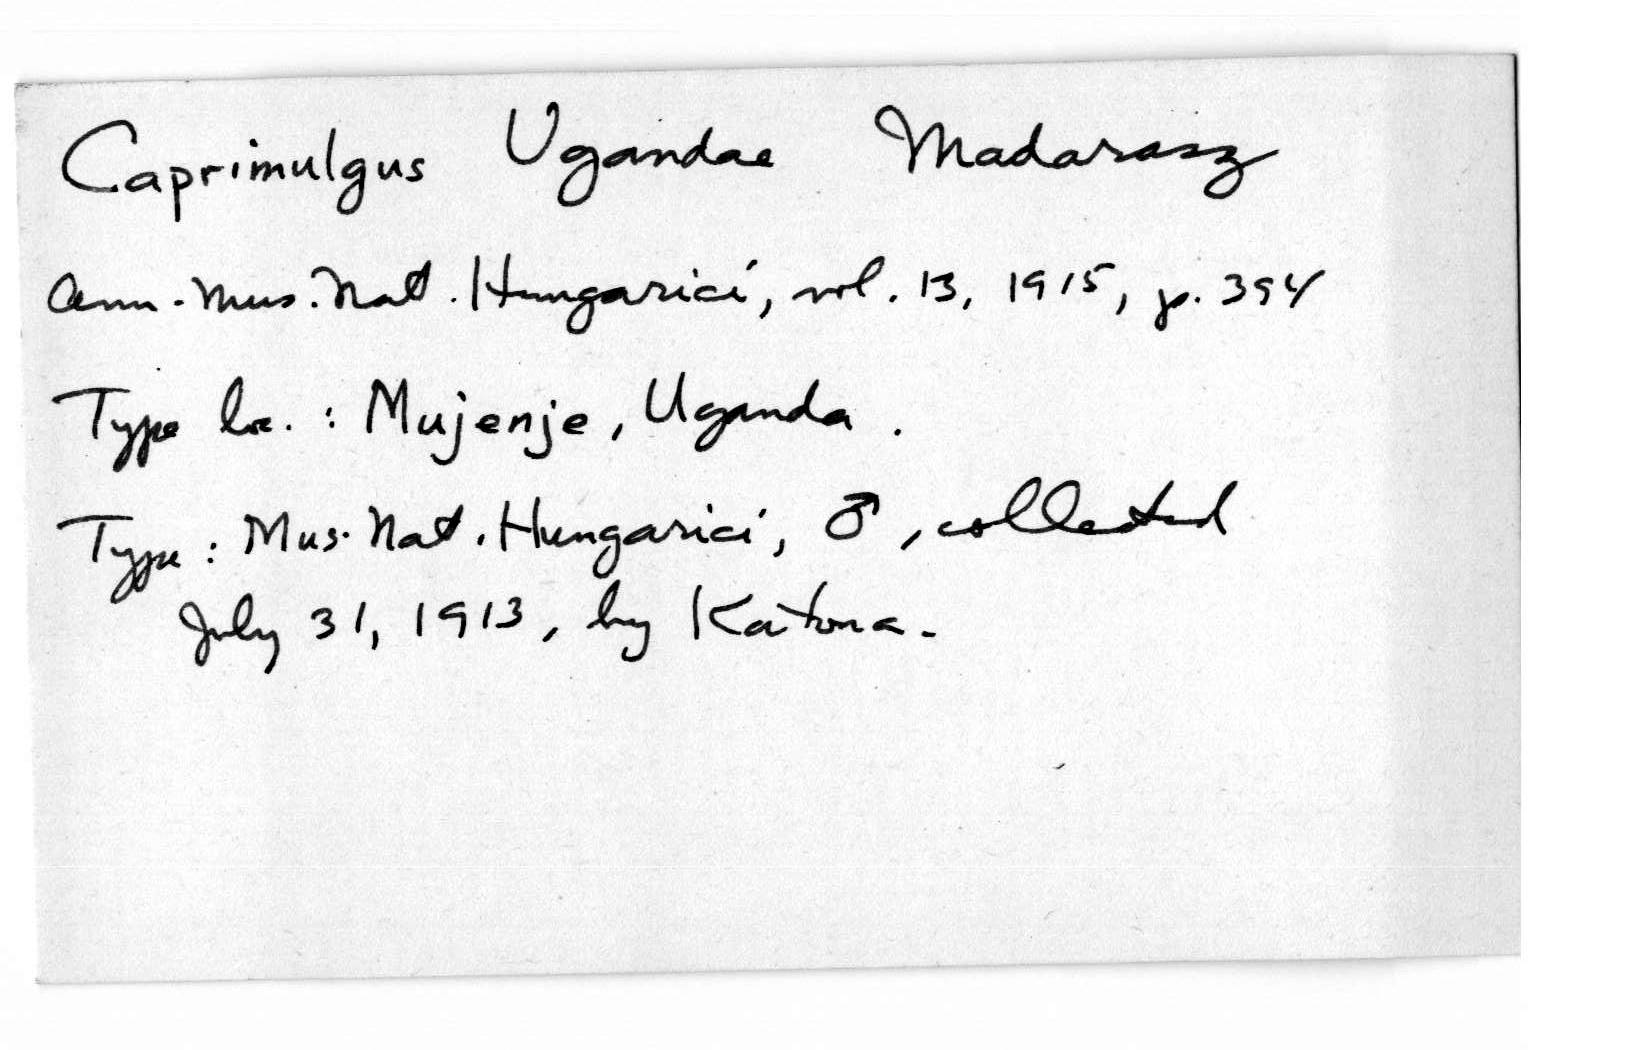 Caprimulgus Ugandae Madarasz
Ann. Mus. Nat. Hungarici, vol. 13, 1915, p. 394
Type loc. : Mujenje, Uganda.
Type : Mus. Nat. Hungarici, ♂, collected
July 31, 1913, by Katona.